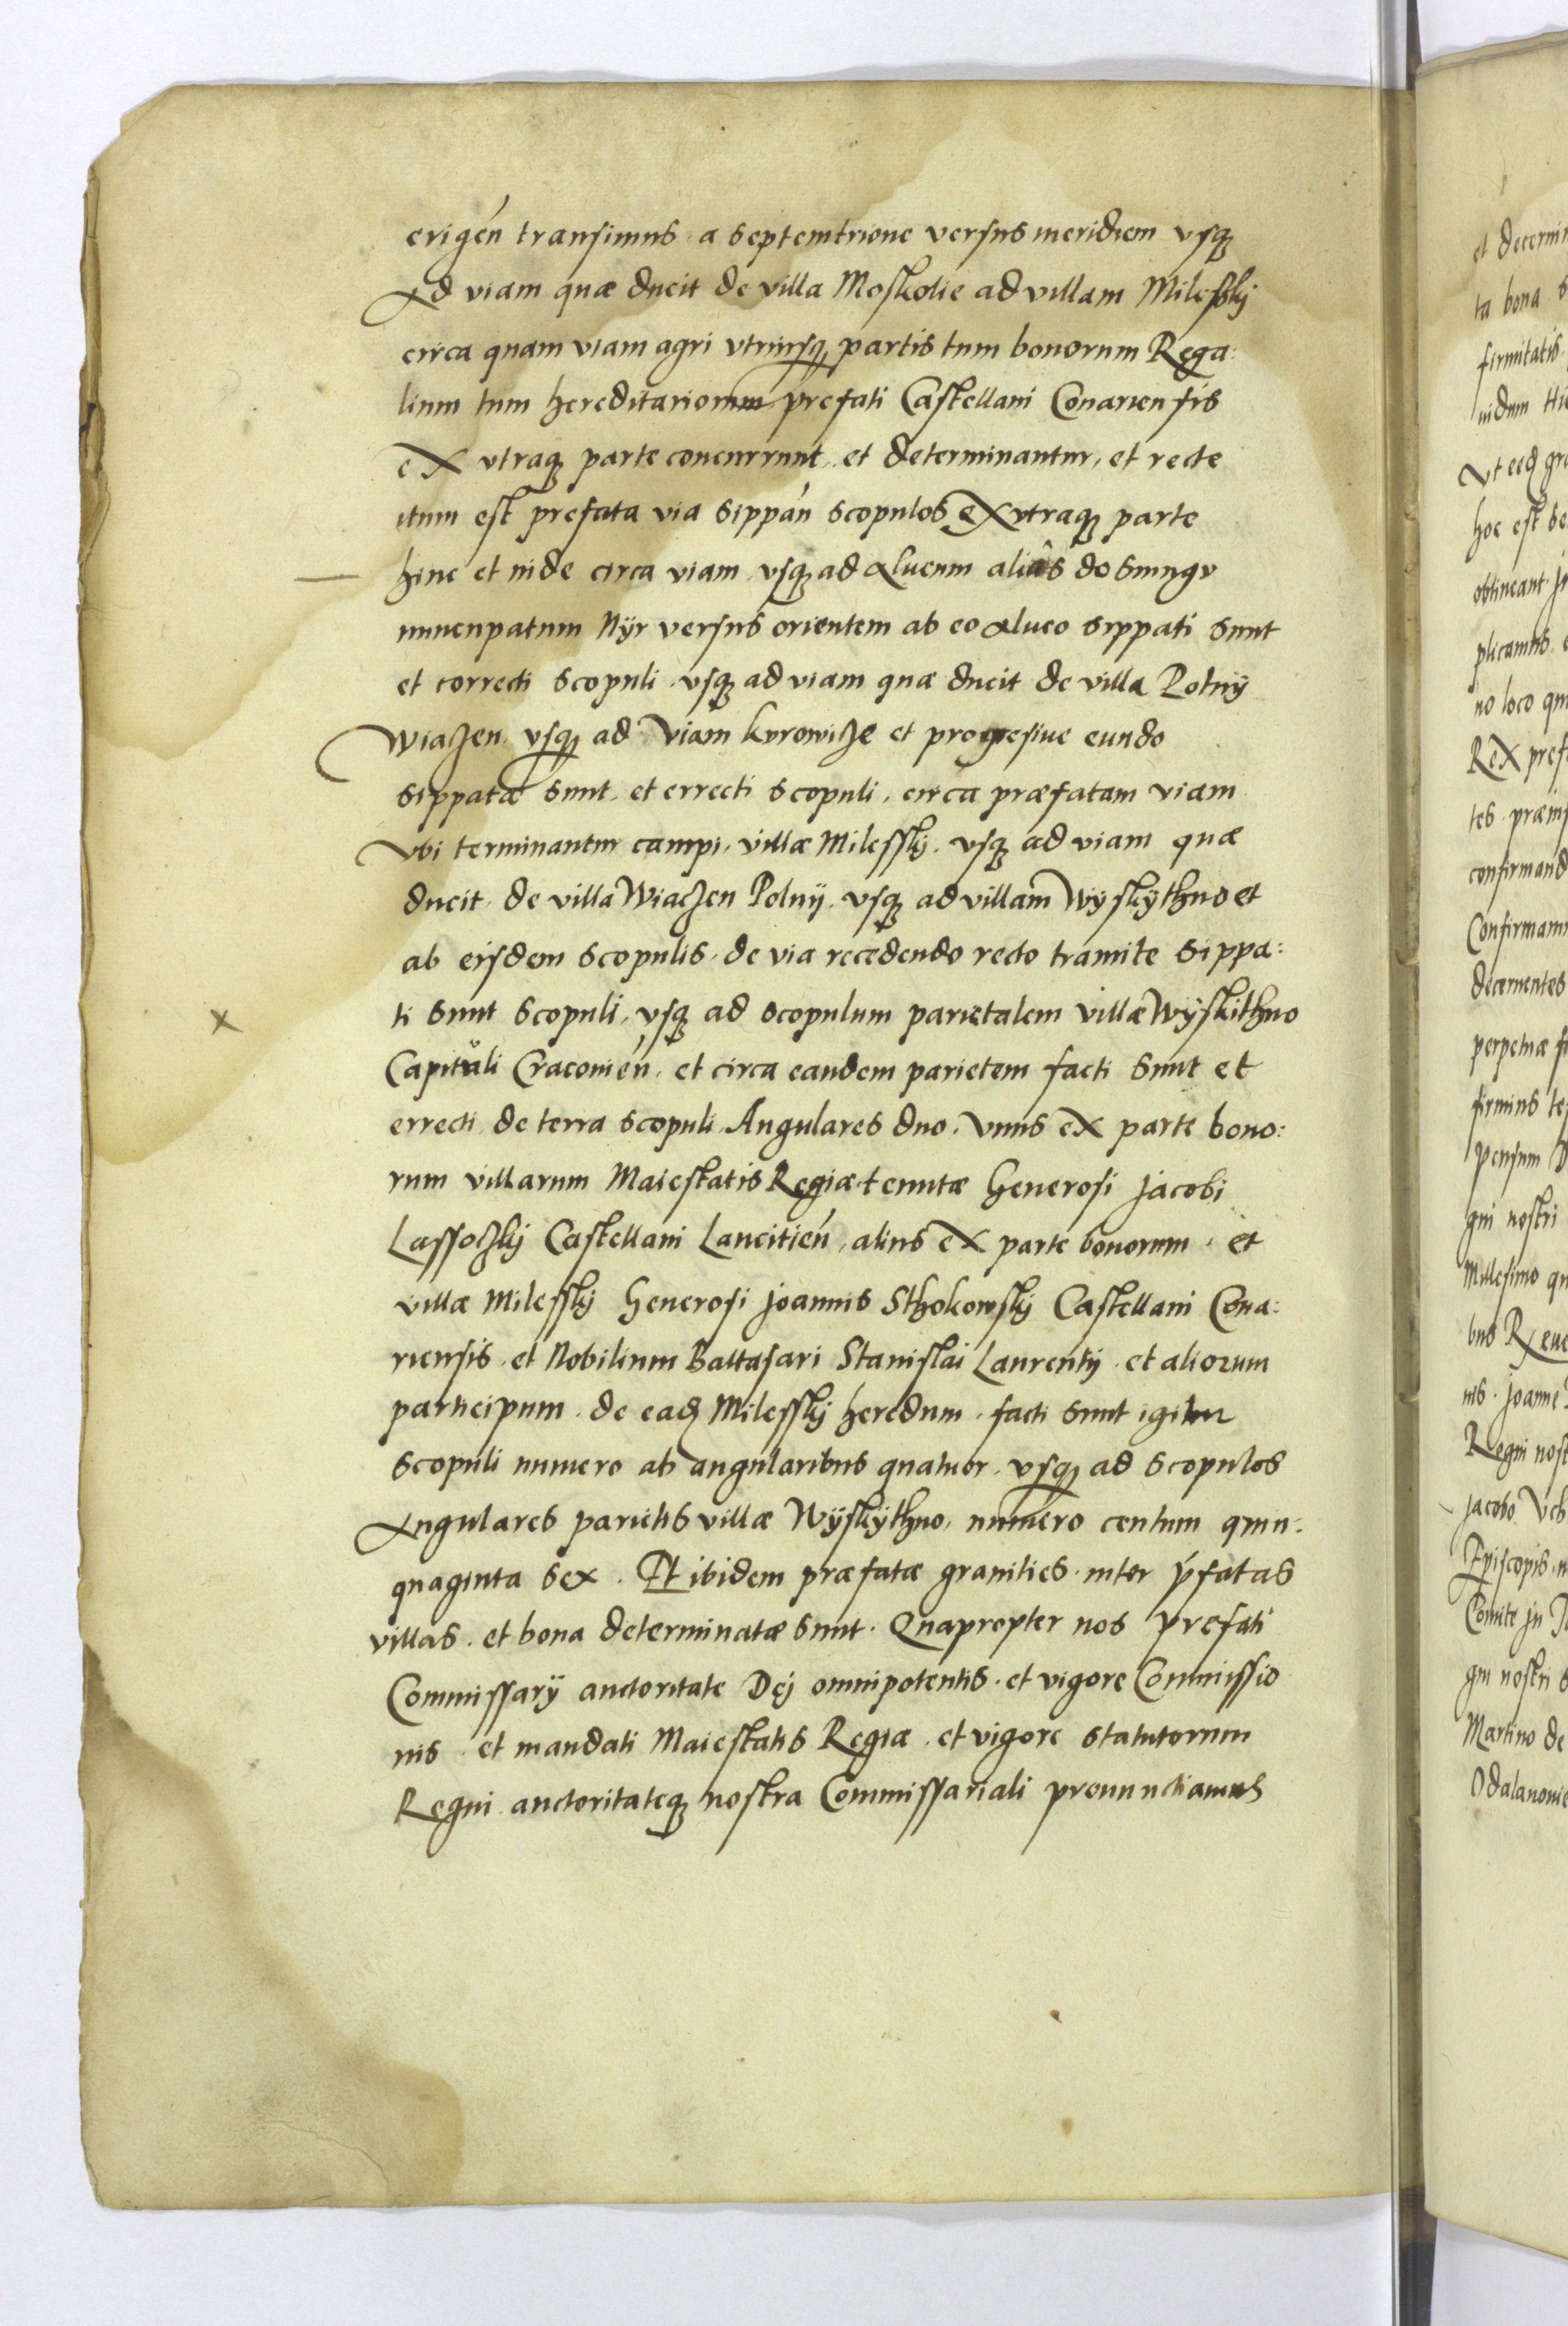 erigén transimus a septemtrione versus meridiem vsq
Ad viam quæ ducit de villa Moskolie ad villam Milesskÿ
circa quam viam agri vtriusq partis tum bonorum Rega:
lium tum hereditariorum prefati Castellani Conariensis
eX vtraq parte concurrunt. et determinantur, et recte
itum est prefata via sippán scopulos eX vtraq parte
hinc et inde circa viam vsq ad Alueum aliâs do Smugv
nuncupatum Nÿr versus orientem ab eo Alueo sippati sunt
et correcti scopuli vsq ad viam quæ ducit de villa Polnÿ
Wiaczen. vsq ad viam kvrowicze et progresiue eundo
sippatæ sunt. et errecti scopuli. circa præfatam viam
vbi terminantur campi. villæ Milesskÿ. vsq ad viam quæ
ducit de villa Wiaczen Polnÿ. vsq ad villam Wÿskÿthno et
ab eisdem scopulis. de via recedendo recto tramite sippa:
ti sunt scopuli. vsq ad scopulum parietalem villæ Wÿskithno
Capituli Cracouień. et circa eandem parietem facti sunt et
errecti de terra scopuli Angulares duo. vnus eX parte bono:
rum villarum Maiestatis Regiæ tenutæ Generosi Jacobi
Lassoczkÿ Castellani Lancitień, alius eX parte bonorum. et
villæ Milesskÿ Generosi Joannis Sthokowskÿ Castellani Cona:
riensis. et Nobilium Baltasari Stanislai Laurentÿ. et aliorum
participum. de ead Milesskÿ heredum. facti sunt igitur
scopuli numero ab angularibus quatuor. vsq ad scopulos
Angulares parietis villæ Wÿskÿthno. numero centum quin:
quaginta sex. Et ibidem præfatæ granities. inter pfatas
villas. et bona determinatæ sunt. Quapropter nos prefati
Commissarÿ auctoritate Dej omnipotentis. et vigore Commissio
nis. et mandati Maiestatis Regiæ. et vigore statutorum
Regni auctoritateq nostra Commissariali pronunctiamus
et determi
ta bona
firmitatis
hoc est
obtineant
plicamus
no loco
ReX pref
tes præin
confirmand
Confirmam
decernentes
perpetuæ
firmius
pensum
gni nostri
Millesimo
nis. Joanne
Regni nost
Jacobo Vch
Episcopis
Comite in
gni nostri
Martino de
Odalanowie